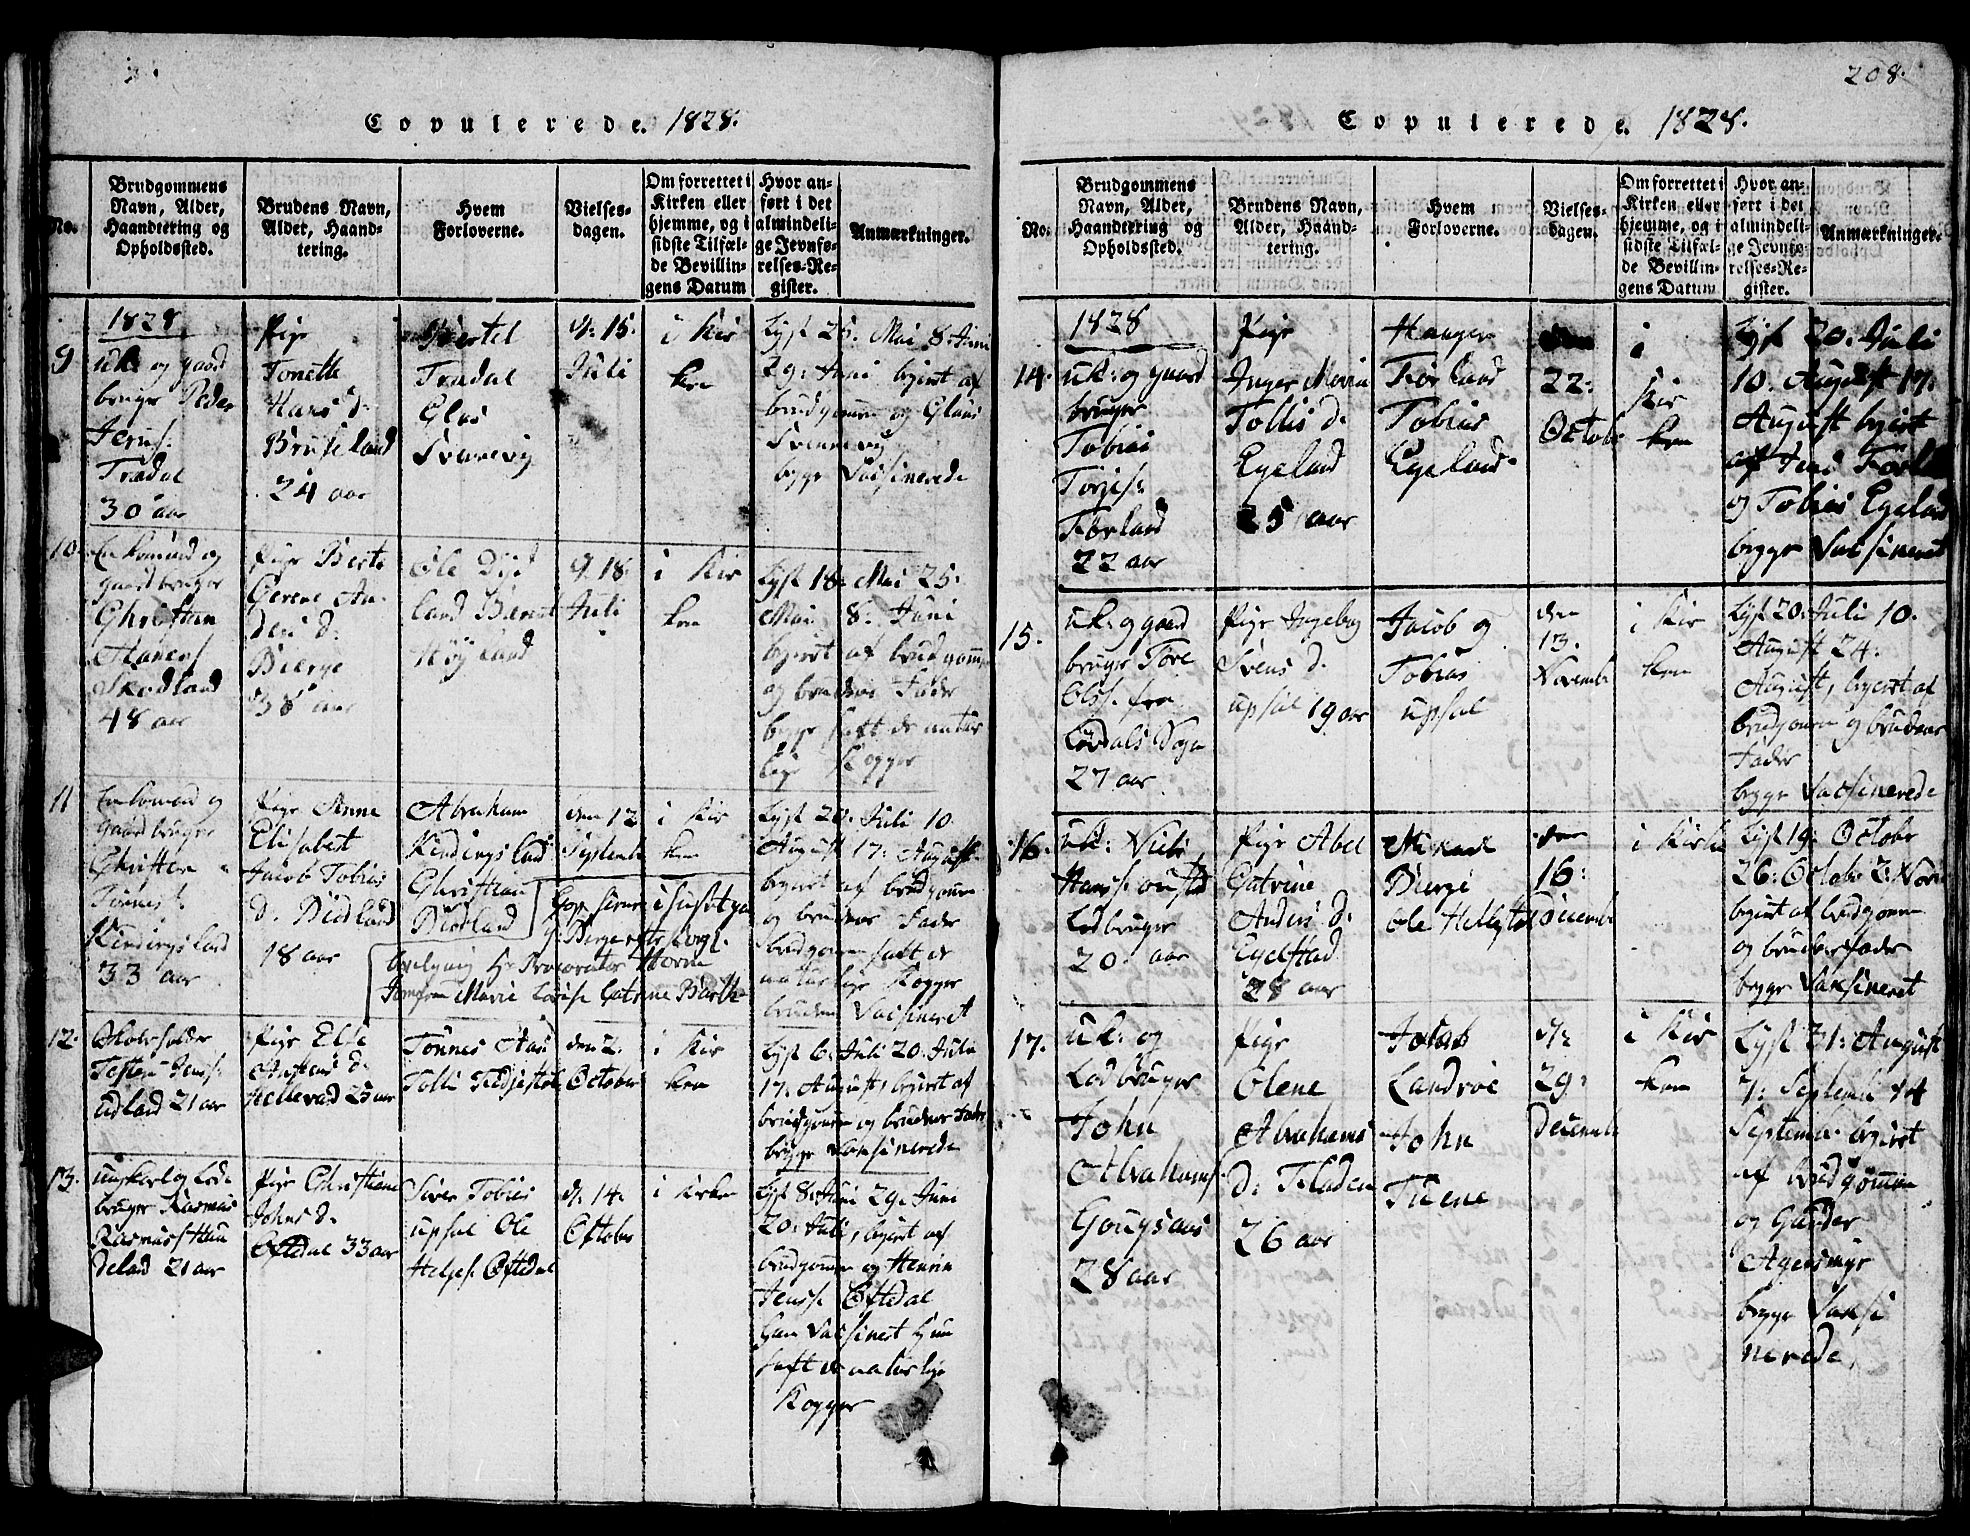 Copulerede. 1828.
No.
Brudgommens Navn, Alder, Haandtering og Opholdssted.
Brudens Navn, Alder, Haandtering.
Hvem Forloverne.
Vielses-dagen.
Om forrettet i Kirken eller hjemme, og i sidste Tilfælde Bevillingens Datum
Hvor anført i det almindelige Jevnførelses-Register.
Anmærkninger.
1828
9
uk og gaard
bruger Peder
Jens s:
Tradal
30 aar
Pige
Tonette
Hans d.
Bruseland
24 aar
Bertel
Tradal
Glas
Svennevig
d: 15.
Juli
i Kir
ken
Lyst 25. Mai 8 Juni
29. Juni begiert af
brudgomen og Glaus
Svennevig
begge Vacsinerede
10.
Enkemand og
gaardbruger
Christian
Hansen
Skodland
48 aar
Pige Berte
Gerene An
ders d.
Bierge
38 aar
Ole Dys
land Berent
Høyland
d. 18.
Juli
i Kir
ken
Lyst 18. Mai 25.
Mai 8. Juni
begiert af brudgomen
og brudens Fader
begge haft de natur
lige Kopper
11
Enkemand og
gaardbruger
Christen
Tønnes s.
Kindingsland
33 aar
Pige Anne
Elisabeet
Jacob Tobias
d. Birkland
18 aar
Abraham
Kindingsland
Christian
Birkland
den 12
Septembr
i Kir
ken
Lyst 20. Juli 10.
August 17. August
begiert af brudgomen
og brudens Fader
brudgomen haft de
naturlige Kopper
bruden Vacsineret
Cop
i huset paa
Bierge efter kongl.
bevilgning Hr Procurator Horne
Jomfru Marie Lovise Catrine Barth
12.
Skoleholder
Testen Jens s.
Udland 21 aar
Pige Else
Anstens d.
Hellevad 25 aar
Tønnes Aas
Tolli Kedjestol
den 2.
October
i Kir
ken
Lyst 6. Juli 20. Juli
17. August, begiert af
brudgomen og brudens Fader
begge Vaksinerede
13.
Unkarl og Led
bruger Rasmus
Rasmus s Hau
deland 21 aar
Pige Christiane
Johns d.
Oftedal 33 aar
Siver Tobias
upsal Ole
Helges. Oftedal
d. 14.
October
i Kirken
Lyst 8. Juni 29. Juni
20. Juli, begiert af
brudgomen og Henrik
Jens s. Oftedal
Han Vacsineret Hun
haft de naturlige
Kopper
208.
Copulerede. 1828.
No.
Brudgommens Navn, Alder, Haandtering og Opholdssted.
Brudens Navn, Alder, Haandtering.
Hvem Forloverne.
Vielses-dagen.
Om forrettet i Kirken eller hjemme, og i sidste Tilfælde Bevillingens Datum
Hvor anført i det almindelige Jevnførelses-Register.
Anmærkninger.
1828
14.
uk: og gaard
bruger
Tobias
Torjes s.
Førland
22 aar
Pige
Inger Maria
Tollis d.
Egeland
25 aar
Haagen
Førland
Tobias
Egeland.
den
22:
Octobr
i
Kir
ken
Lyst 20. Juli
10. August 17.
August begiert
af Jens Førland
og Tobias Egeland
begge Vacsineret
15.
uk: og gaard
bruger Tore
Ols s. fra
Lovdals Sogn
27 aar
Pige Ingeborg
Svens d.
upsal 19 aar
Jacob og
Tobias
upsal
den
13.
Novembr
i Kir
ken
Lyst 20: Juli 10.
August 24.
August, begiert af
brudgomen og brudens
Fader
begge Vacsinerede
16.
uk: Niels
Hans s.
Ledbruger
20. aar
Pige Abel
Catrine
Anders d.
Egelstad
28 aar
Mikael
Bierge
Ole Hellestøl
den
16:
Decembr
i Kirken
Lyst 19: Octobr
26: Octobr 2: Novbr
begiert af brudgomen
og brudens Fader
begge Vaksineret
17.
uk: og
Ledbruger
John
Abrahams s.
Gougsaas
28 aar
Pige
Olene
Abrahams
d: Fladen
26 aar
Jokab
Landrøe
John
Tuene
d:
29:
Decembr
i Kir
ken
Lyst 31: August
7: Septembr 14
Septembr begiert
af brudgomen
og Gunder
Agersmyr
begge Vaksi
nerede